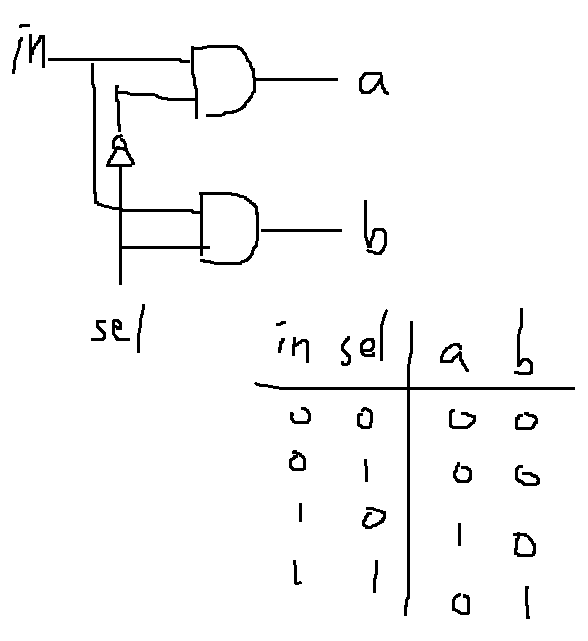 in
a
b
sel
in sel a b
0 0 0 0
0 1 0 0
1 0 1 0
1 1 0 1